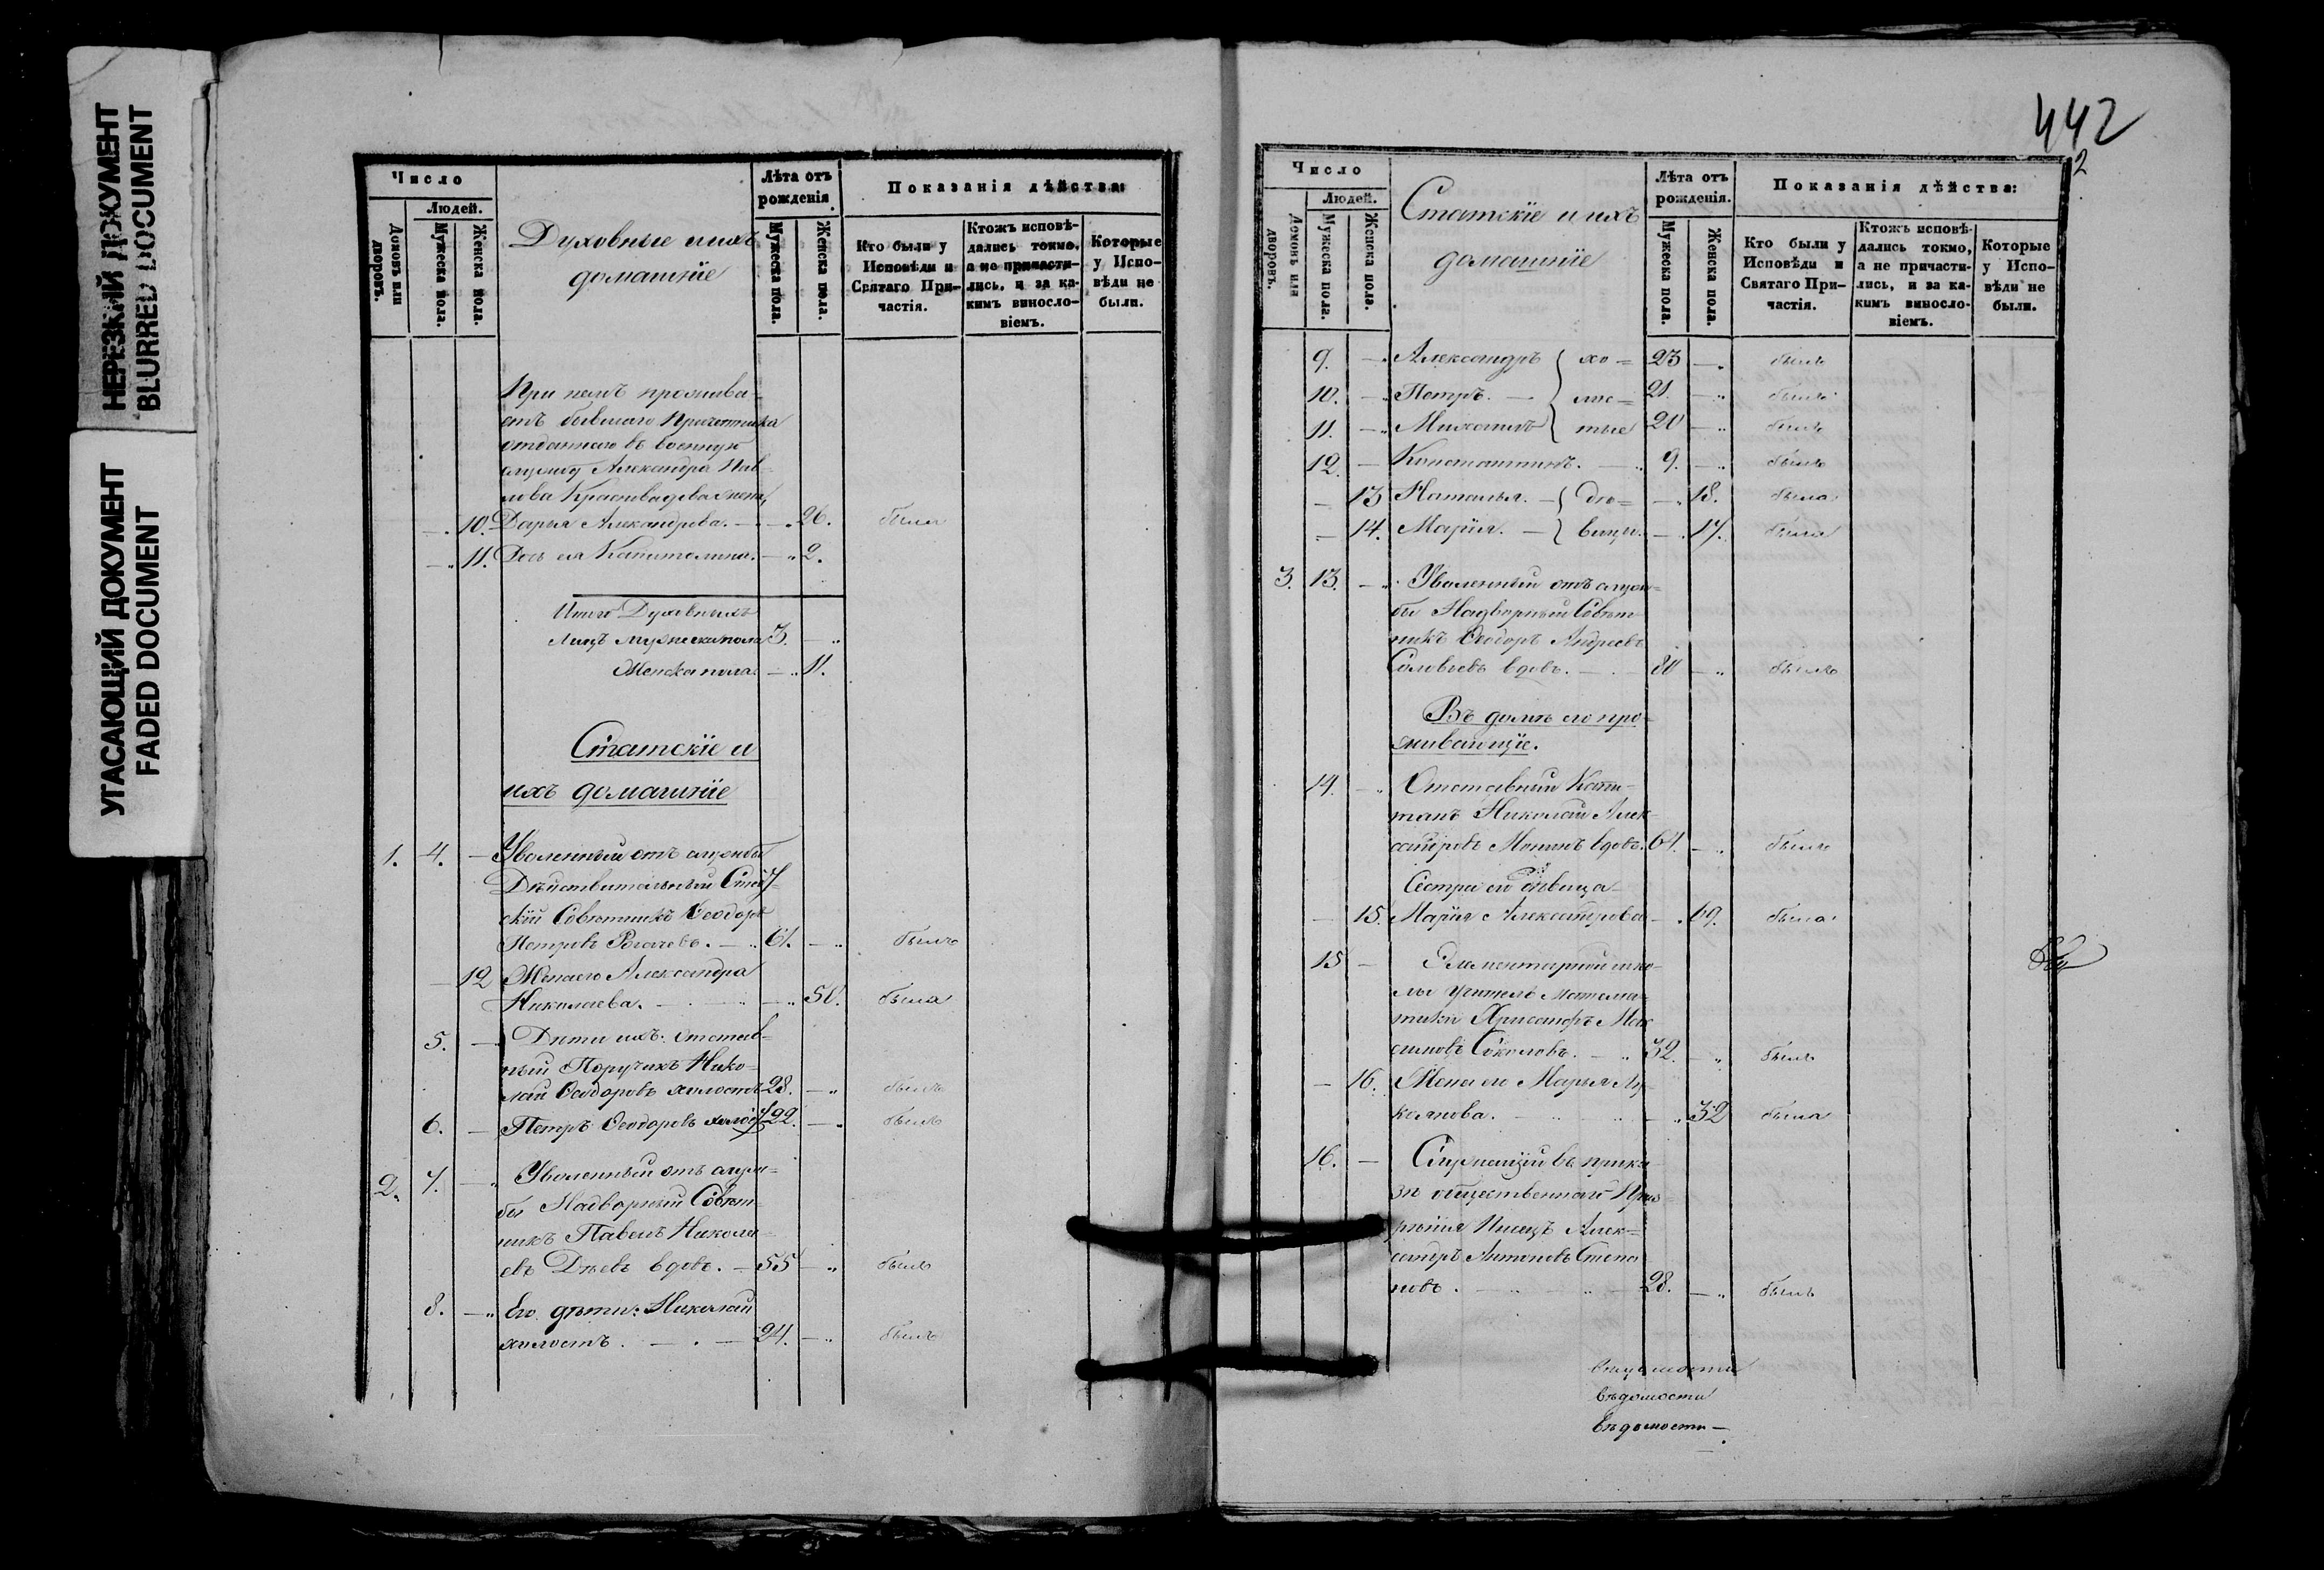 НЕРЕЗКИЙ ДОКУМЕНТ
BLURRED DOCUMENT
УГАСАЮЩИЙ ДОКУМЕНТ
FADED DOCUMENT
Число
Людей.
Домовъ или дворовъ.
Мужеска пола.
Женска пола.
Духовные и ихъ
домашніе
Лѣта отъ
рожденія.
Мужеска пола.
Женска пола.
Показанія дѣйства:
Кто были у
Исповѣди и
Святаго При-
частія.
Ктожъ исповѣ-
дались токмо,
а не причасти-
лись, и за ка-
кимъ виносло-
віемъ.
Которые
у Испо-
вѣди не
были.
При немъ прожива-
етъ бывшаго Причетника
отданнаго въ военную
службу Александра Пав-
лова
10. Дарья Александрова. 26. была
11. Дочь ея Капитолина. 2.
Итого Духовныхъ
Лицъ мужеска пола 3.
Женска пола 11.
Статскіе и
ихъ домашніе
1. 4. Уволенный отъ службы
Дѣйствительный Стат-
скій Совѣтникъ Ѳеодоръ
Петровъ 61. былъ
12 Жена его Александра
Николаева. 50. была
5. Дѣти ихъ: Отстав-
ный Поручикъ Нико-
лай Ѳеодоровъ холостъ 28. былъ
6. Петръ Ѳеодоровъ холост 22. былъ
2. 7. Уволенный отъ служ-
бы Надворный Совѣт-
никъ Павелъ Никола-
евъ Дѣевъ вдовъ. 55 былъ
8. Его дѣти: Николай
холостъ. 24. былъ
442
2
Число
Людей.
Домовъ или дворовъ.
Мужеска пола.
Женска пола.
Статскіе и ихъ
домашніе
Лѣта отъ
рожденія.
Мужеска пола.
Женска пола.
Показанія дѣйства:
Кто были у
Исповѣди и
Святаго При-
частія.
Ктожъ исповѣ-
дались токмо,
а не причасти-
лись, и за ка-
кимъ виносло-
віемъ.
Которые
у Испо-
вѣди не
были.
9. Александръ хо= 23 былъ
10. Петръ. лос= 21. былъ
11. Михаилъ тые 20 былъ
12. Константинъ. 9. былъ
13 Наталья. дѣ= 18. была
14. Марія. вицы. 17. была
3. 13. Уволенный отъ служ=
бы Надворный Совѣт
никъ Ѳеодоръ Андреевъ
Соловьевъ вдовъ. 80 былъ
Въ домѣ его про-
живающіе.
14. Отставный Капи-
танъ Николай Алек-
сандровъ Монинъ вдовъ. 64. былъ
Сестра его дѣвица
15. Марія Александрова 69. была
15 Элементарной шко-
лы Учитель Матема-
тики Хрисанфъ Мак
симовъ Соколовъ. 32. былъ
16. Жена его Марья Лу-
кьянова. 32 была
16. Служащій въ прика
зѣ общественнаго При-
зрѣнія Писецъ Алек=
сандръ Антоновъ Степа
новъ. 28. былъ
вѣдомости
вѣдомости